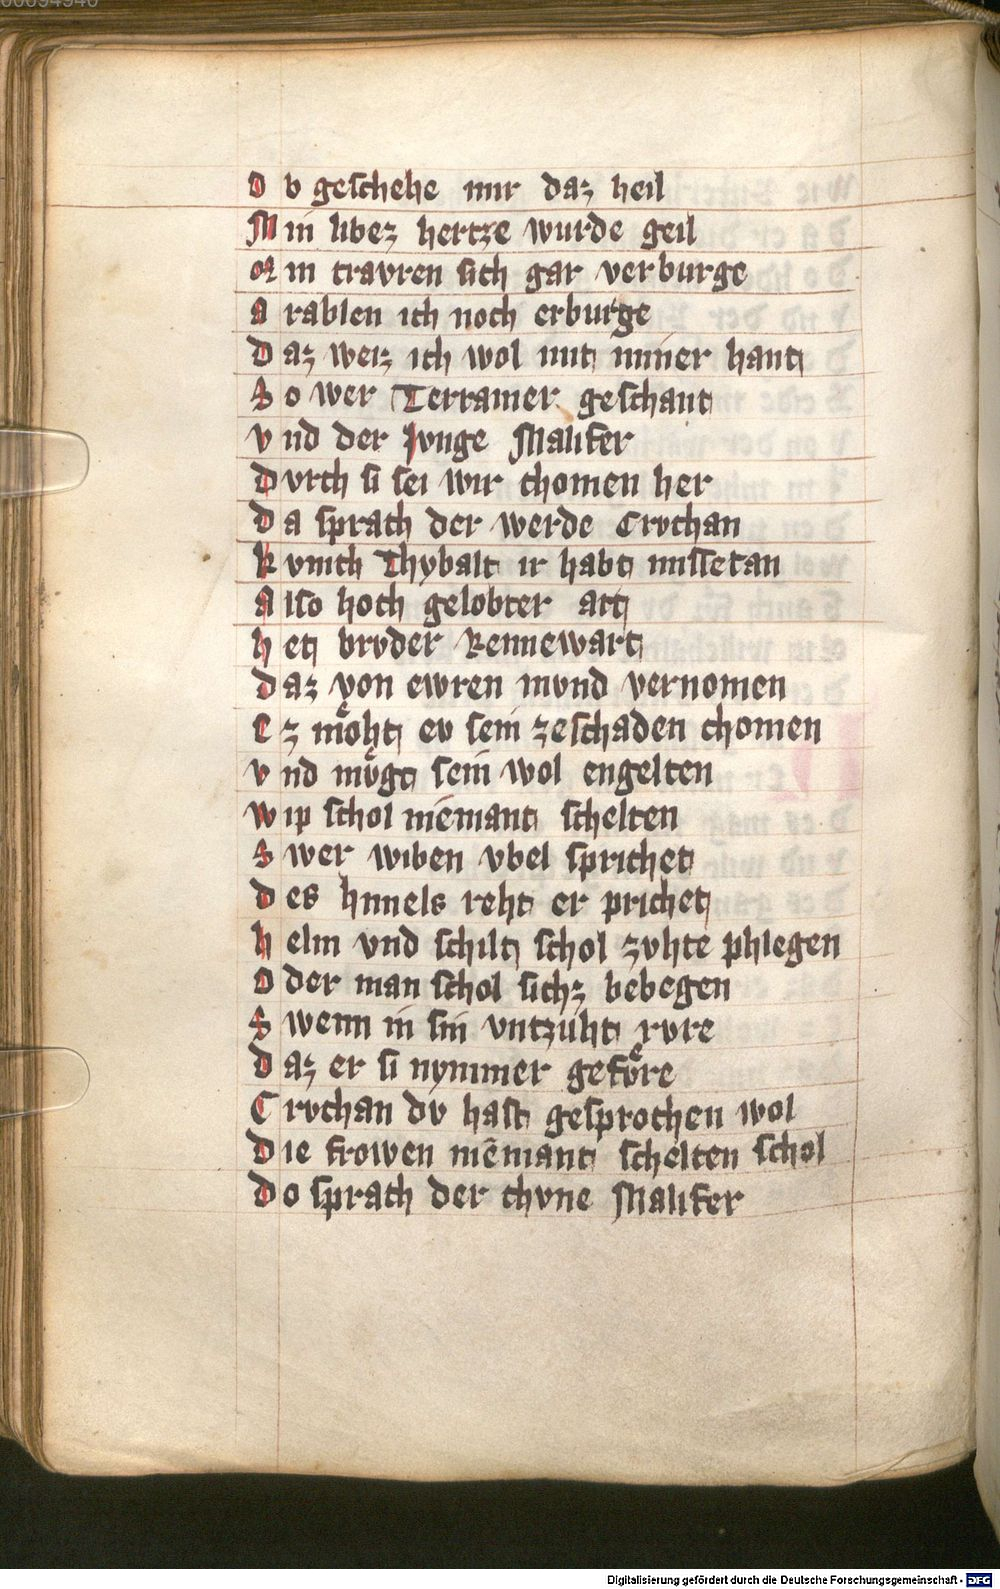 O b geschehe mir daz heil
M in libez hertze wurde geil
M in travren sich gar verburge
A rablen ich noch erburge
D az weiz ich wol mit miner hant
S o wer Terramer geschant
v nd der Jvnge Malifer
D vrch si sei wir chomen her
D a sprach der werde Crvchan
K vnich Thybalt ir habt missetan
A lso hoch gelobter art
h et brvder Rennewart
D az von ewren mvnd vernomen
E z möht ev sein ze schaden chomen
v nd mvgt sein wol engelten
w ip schol niemant schelten
S wer wiben vbel sprichet
D es himels reht er prichet
h elm vnd schilt schol zvhte phlegen
O der man schol sichz bebegen
S wenn in sin vntzuht rvre
D az er si nymmer gefvre
C rvchan dv hast gesprochen wol
D ie frowen niemant schelten schol
D o sprach der chvne Malifer
Digitalisierung gefördert durch die Deutsche Forschungsgemeinschaft - DFG